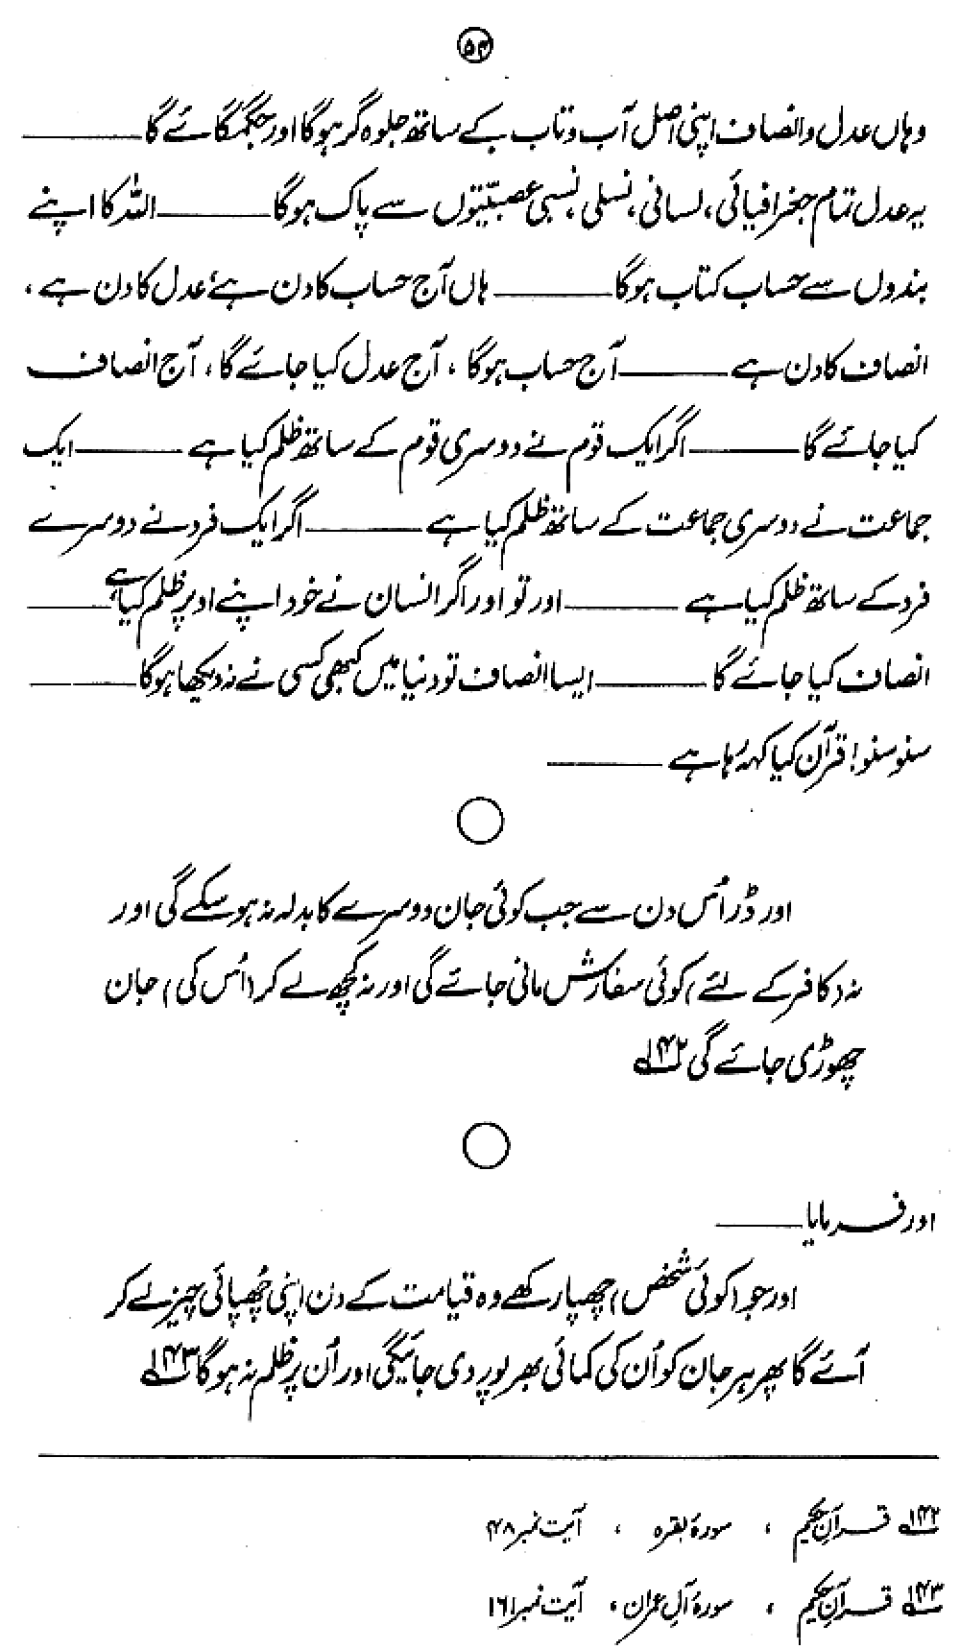 ۵۴
وہاں عدل و انصاف اپنی اصل آب و تاب کے ساتھ جلوہ گر ہوگا اور جگمگائے گا ———
یہ عدل تمام جغرافیائی، لسانی، نسلی، نسبی عصبیّتوں سے پاک ہوگا ——— اللہ کا اپنے
بندوں سے حساب کتاب ہوگا ——— ہاں آج حساب کا دن ہے، عدل کا دن ہے،
انصاف کا دن ہے ——— آج حساب ہوگا، آج عدل کیا جائے گا، آج انصاف
کیا جائے گا ——— اگر ایک قوم نے دوسری قوم کے ساتھ ظلم کیا ہے ——— ایک
جماعت نے دوسری جماعت کے ساتھ ظلم کیا ہے ——— اگر ایک فرد نے دوسرے
فرد کے ساتھ ظلم کیا ہے ——— اور تو اور اگر انسان نے خود اپنے اوپر ظلم کیا ہے ———
انصاف کیا جائے گا ——— ایسا انصاف تو دنیا میں کبھی کسی نے نہ دیکھا ہوگا ———
سنو سنو! قرآن کیا کہہ رہا ہے ———
اور ڈر اُس دن سے جب کوئی جان دوسرے کا بدلہ نہ ہو سکے گی اور
نہ (کافر کے لئے) کوئی سفارش مانی جائے گی اور نہ کچھ لے کر (اُس کی) جان
چھوڑی جائے گی ۱۴۲؎
اور فرمایا ———
اور جو (کوئی شخص) چھپا رکھے وہ قیامت کے دن اپنی چُھپائی چیز لے کر
آئے گا پھر ہر جان کو اُن کی کمائی بھرپور دی جائیگی اور اُن پر ظلم نہ ہوگا ۱۴۳؎
۱۴۲؎ قرآن حکیم ، سورۂ بقرہ ، آیت نمبر ۴۸
۱۴۳؎ قرآن حکیم ، سورۂ آل عمران ، آیت نمبر ۱۶۱